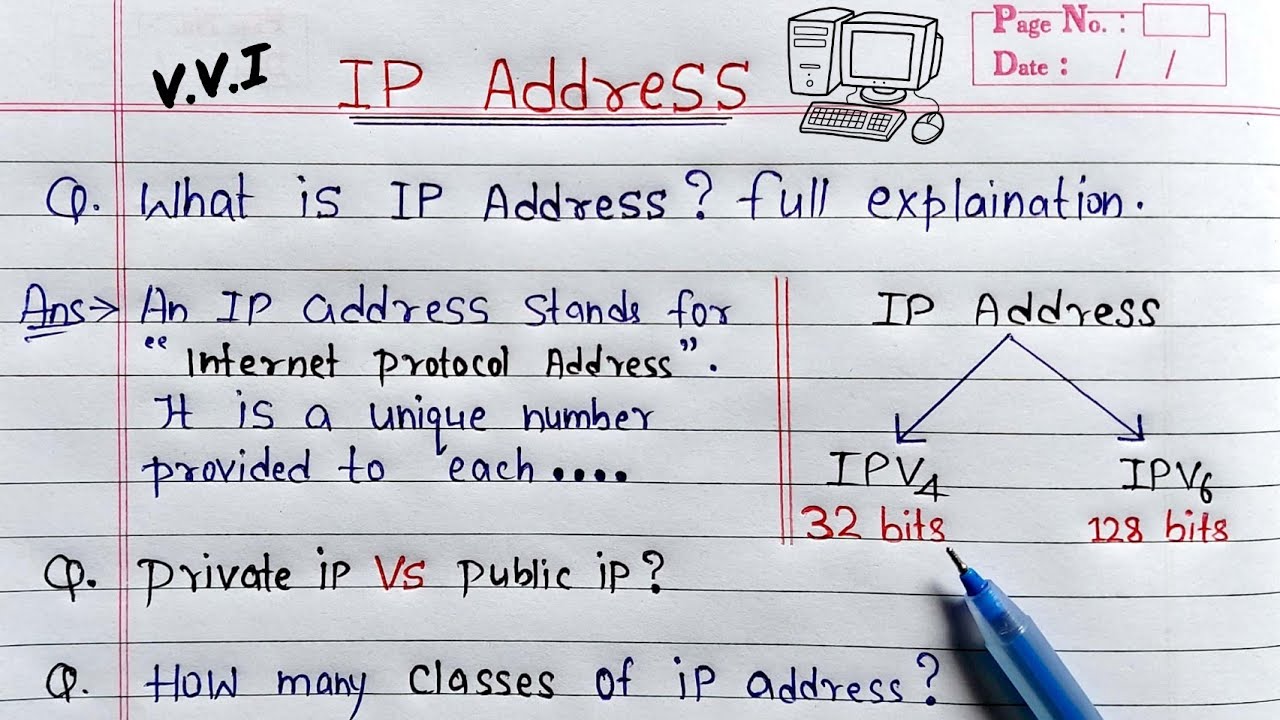 V.V.I IP Address
Page No. :
Date : / /
Q. What is IP Address? full explaination.
Ans→ An IP address stands for
"Internet Protocol Address".
It is a unique number
provided to each....
IP Address
IPV4 IPV6
32 bits 128 bits
Q. Private iP VS Public iP?
Q. How many Classes of iP address?